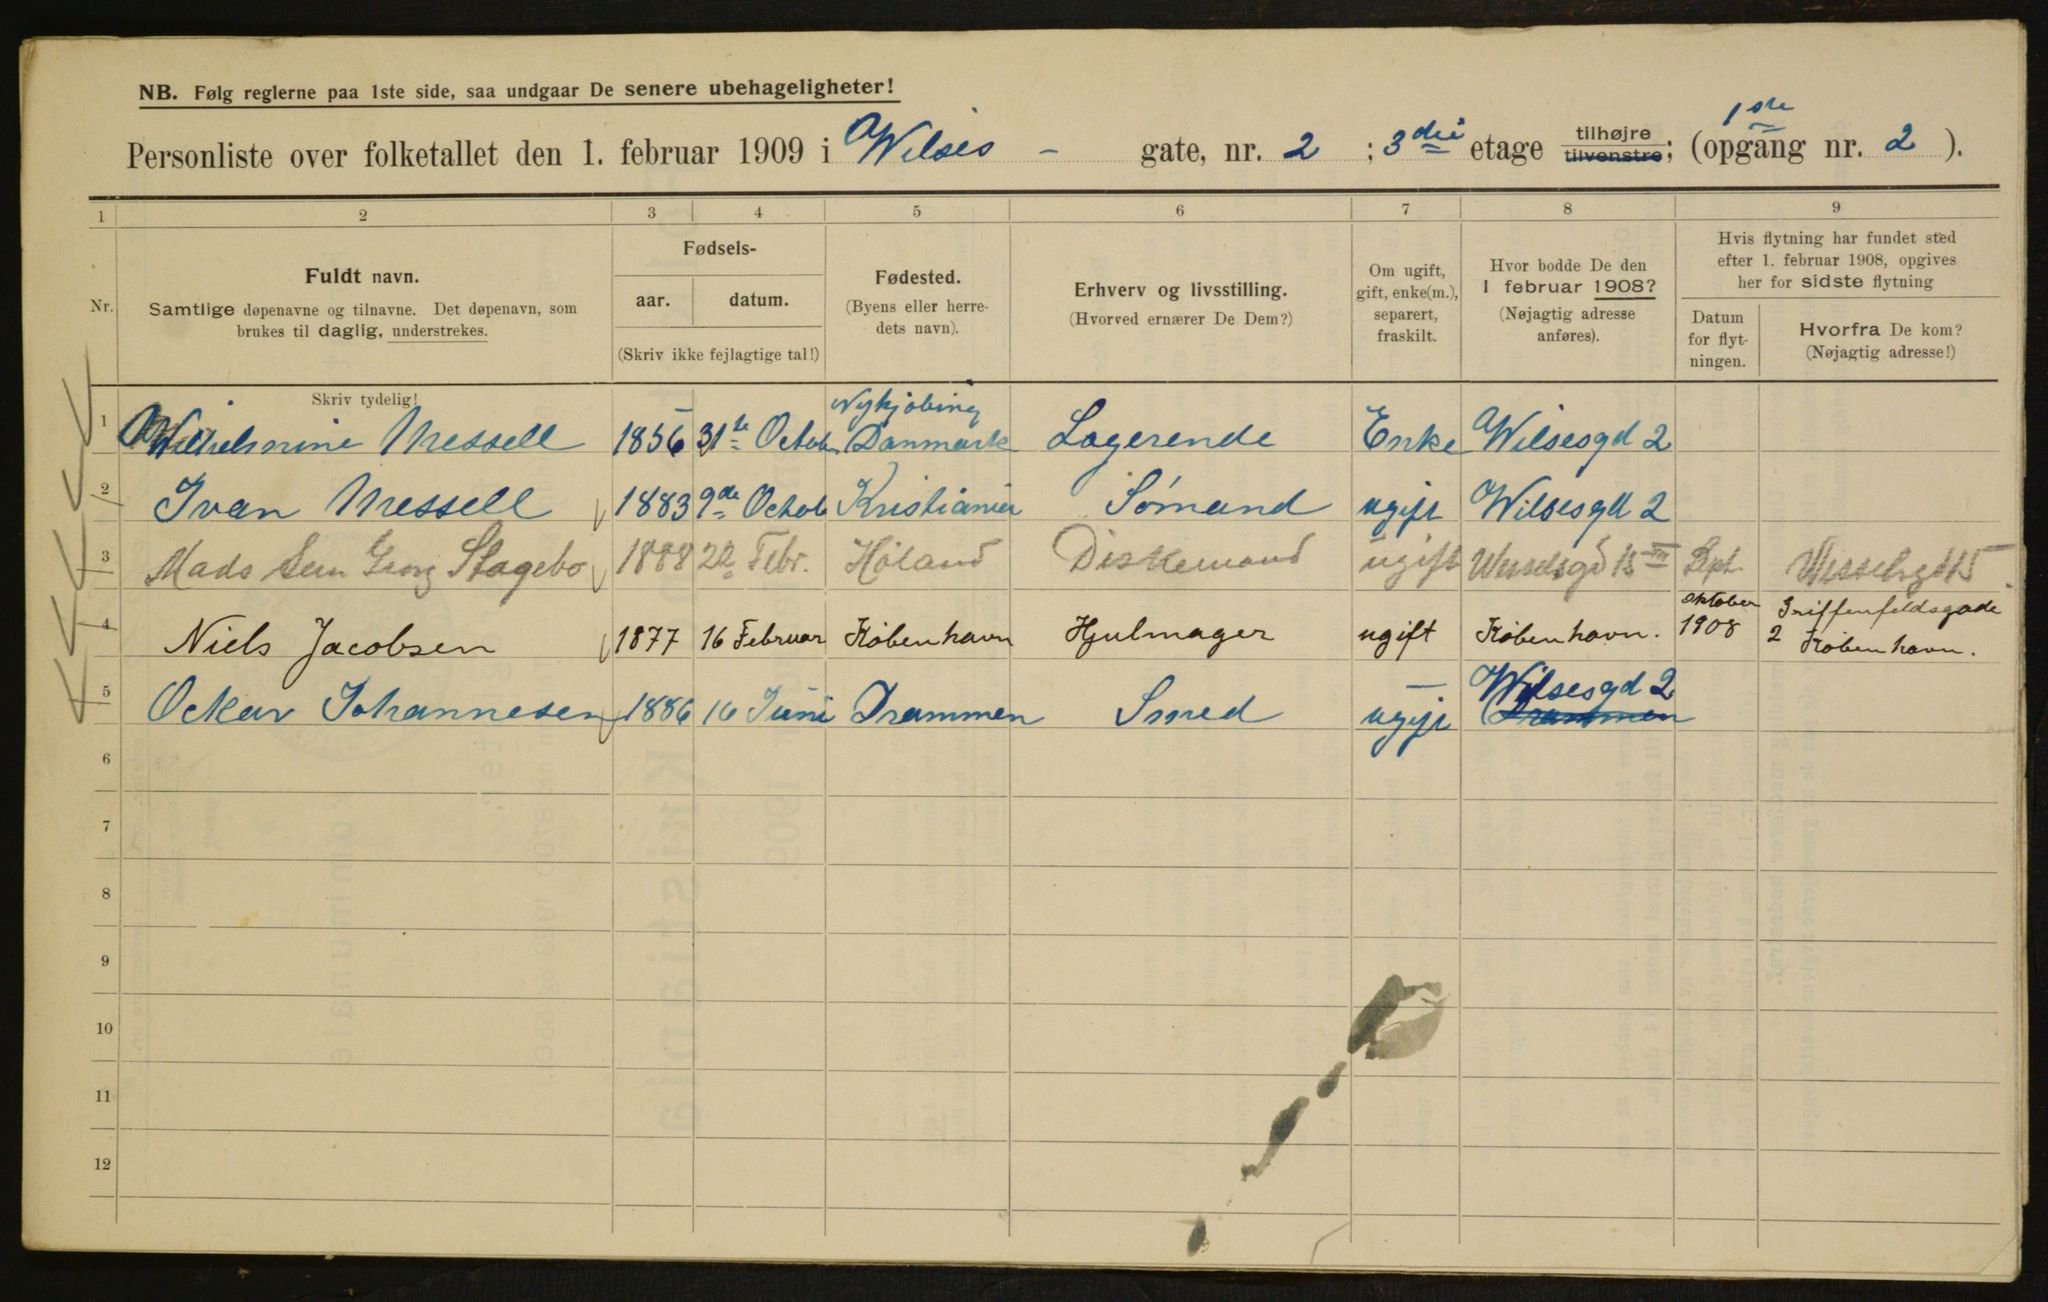 NB. Følg reglerne paa 1ste side, saa undgaar De senere ubehageligheter!
Personliste over folketallet den 1. februar 1909 i Wilses - gate, nr. 2 ; 3die etage tilhøjre tilvenstre; (opgang nr. 2 ).
1ste
1 2 3 4 5 6 7 8 9
Nr.
Fuldt navn.
Samtlige døpenavne og tilnavne. Det døpenavn, som
brukes til daglig, understrekes.
Skriv tydelig!
Fødsels-
aar. datum.
(Skriv ikke fejlagtige tal!)
Fødested.
(Byens eller herre-
dets navn).
Erhverv og livsstilling.
(Hvorved ernærer De Dem?)
Om ugift,
gift, enke(m.),
separert,
fraskilt.
Hvor bodde De den
1 februar 1908?
(Nøjagtig adresse
anføres).
Hvis flytning har fundet sted
efter 1. februar 1908, opgives
her for sidste flytning
Datum
for flyt-
ningen.
Hvorfra De kom?
(Nøjagtig adresse!)
Nykjøbing
1 Wilhelmine Messell 1856 31te Octob Danmark Logerende Enke Wilsesgd 2
2 Ivan Messell 1883 9de Octob Kristiania Sømand ugift Wilsesgd 2
3 Mads Georg Stagebo 1888 22 Febr. Høland Diskemand ugift Wesselsgd 15 III Sept Wesselsgd 15
oktober Griffenfeldsgade
4 Niels Jacobsen 1877 16 Februar København Hjulmager ugift København. 1908 2 København.
Wilsesgd 2
5 Ockar Johannesen 1886 16 Juni Drammen Smed ugift Drammen
6
7
8
9
10
11
12